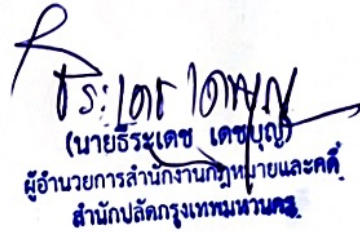 ธีระเดช เดชบุญ
(นายธีระเดช เดชบุญ)
ผู้อำนวยการสำนักงานกฎหมายและคดี
สำนักปลัดกรุงเทพมหานคร